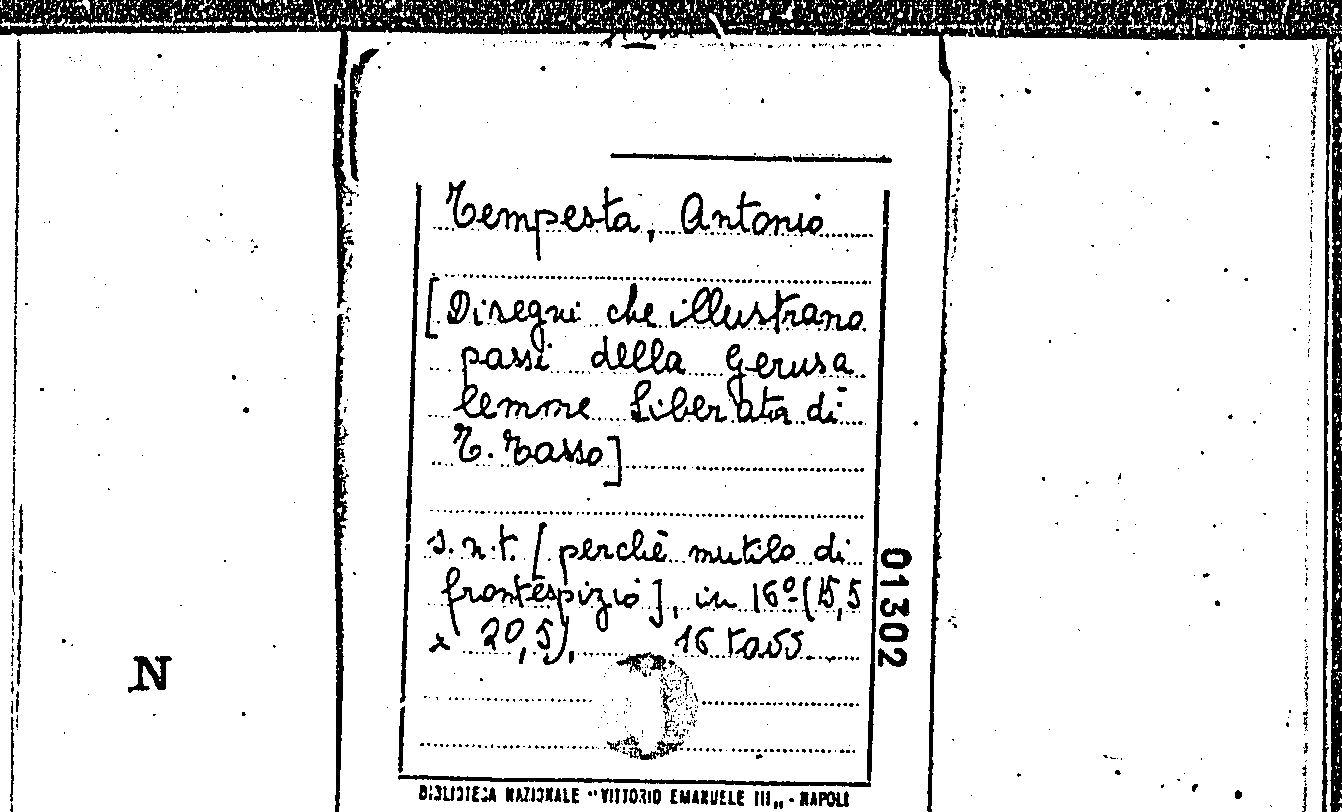 Tempesta, Antonio
[Disegni che illustrano
passi della Gerusa
lemme Liberata di
T. Tasso]
s.n.t. [perchè mutilo di
frontespizio], in 16º (15,5
x 20,5), 16 tavv.
01302
N
BIBLIOTECA NAZIONALE "VITTORIO EMANUELE III„ - NAPOLI